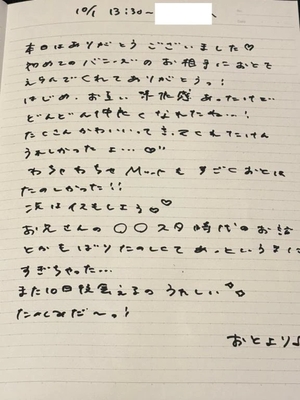 10/1 13:30〜
本日はありがとうございました♡
初めてのバニーズのお相手におとを
えらんでくれてありがとうっ!
はじめ、お互い 緊張感 あったけど
どんどん仲良くなれたね…!
たくさんかわいいってきてくれたけん
うれしかったよ…♡
わちゃわちゃ Mだけど すごくおとは
たのしかった!!
次はイスもしよう♡
お兄さんの 〇〇スタ時代のお話
とかもばりたのしくて あっというまに
すぎちゃった…
また10日後会えるの うれしい
たのしみだ〜っ!
おとより♪